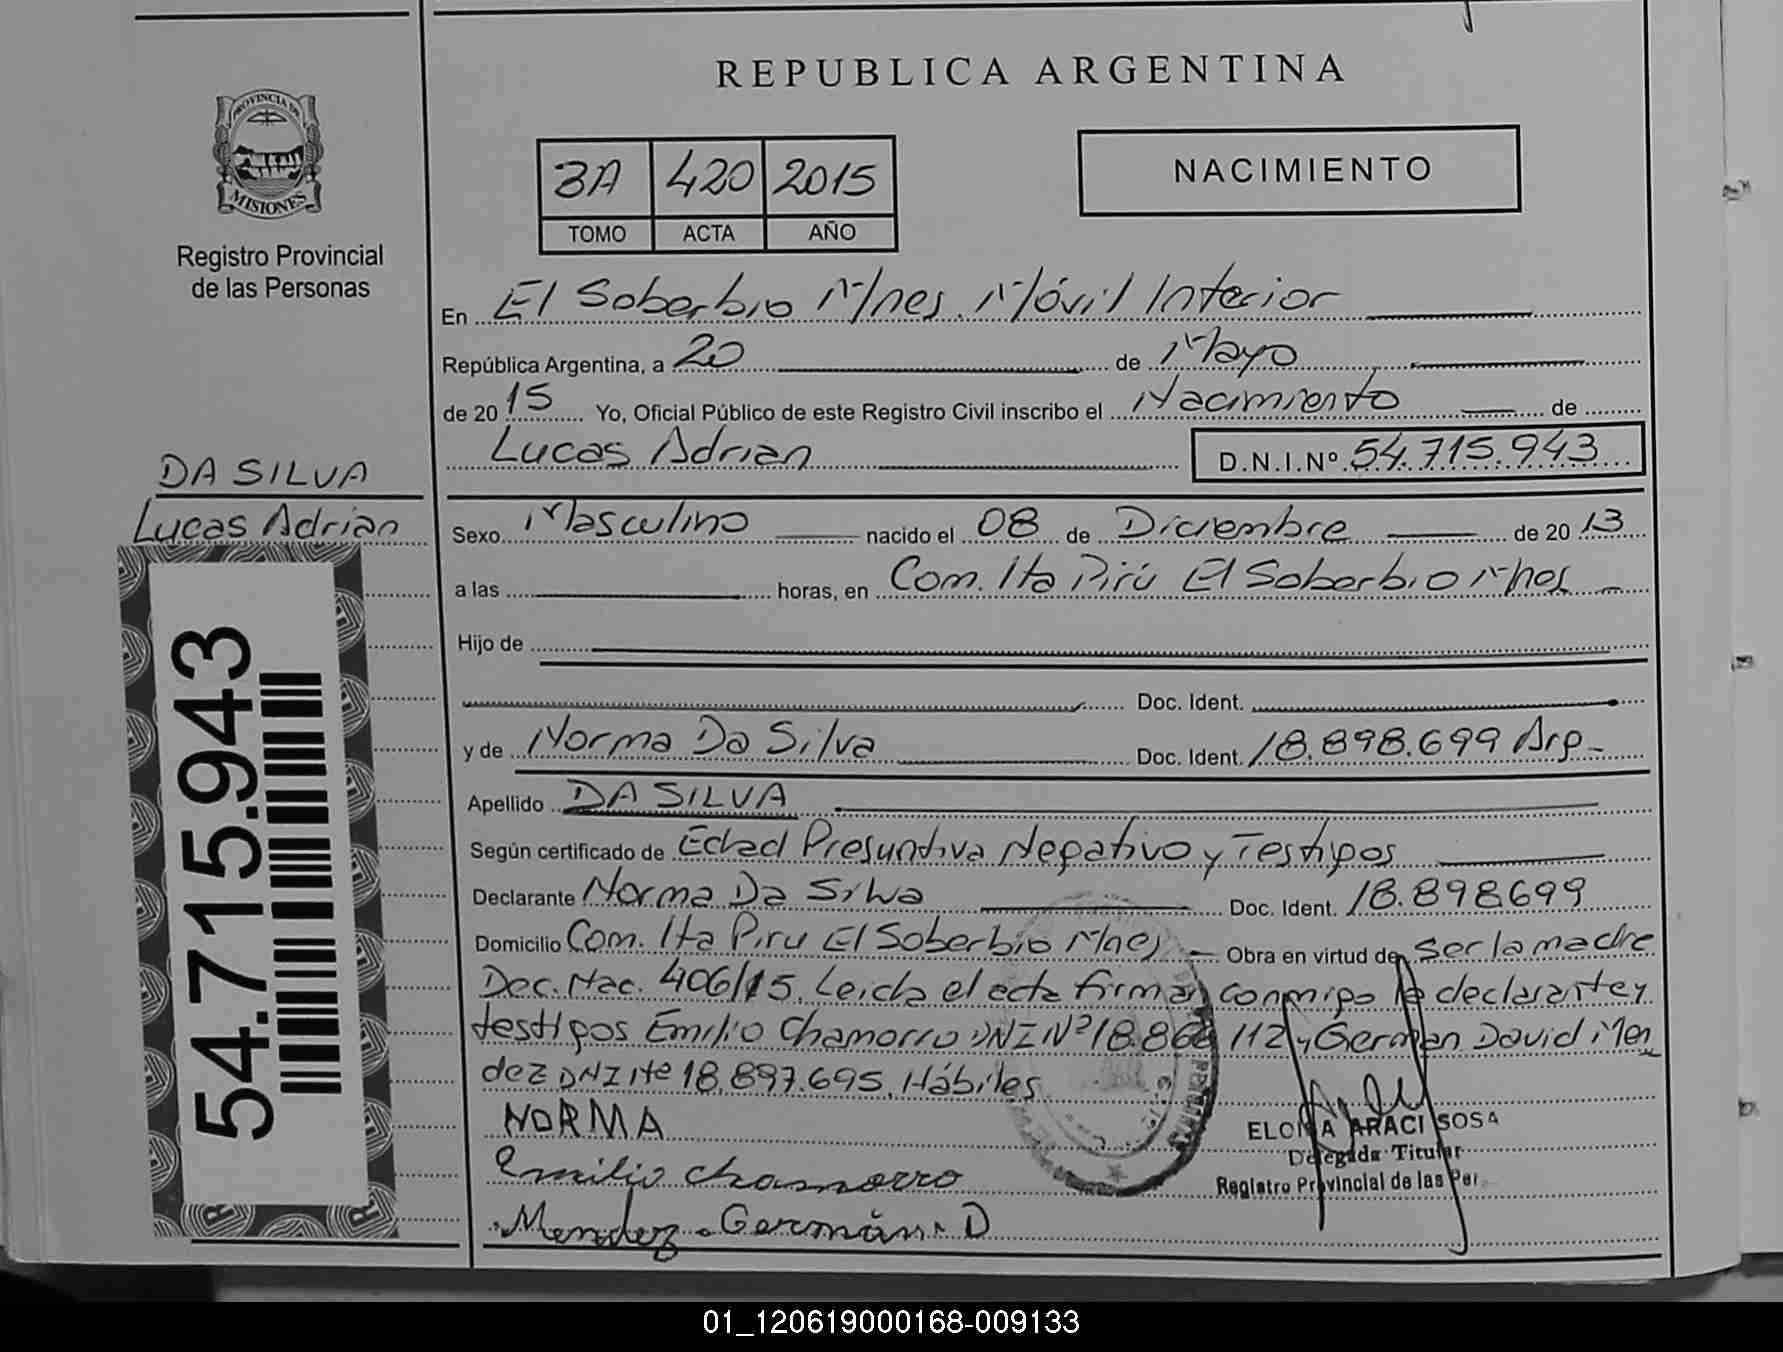 REPUBLICA ARGENTINA
PROVINCIA DE
MISIONES
Registro Provincial
de las Personas
3A 420 2015
TOMO ACTA AÑO
NACIMIENTO
En El Soberbio Mnes. Móvil Interior
República Argentina, a 20 de Mayo
de 20 15 Yo, Oficial Público de este Registro Civil inscribo el Nacimiento de
Lucas Adrian D.N.I.Nº 54.715.943
DA SILVA
Lucas Adrian
54.715.943
Sexo Masculino nacido el 08 de Diciembre de 20 13
a las horas, en Com. Ita Pirú El Soberbio Mnes
Hijo de
Doc. Ident.
y de Norma Da Silva Doc. Ident. 18.898.699 Arg-
Apellido DA SILVA
Según certificado de Edad Presuntiva Negativo y Testigos
Declarante Norma Da Silva Doc. Ident. 18.898699
Domicilio Com. Ita Piru El Soberbio Mnes Obra en virtud de Ser la madre
Dec. Nac. 406/15. Leida el acta firman conmigo la declarante y
testigos Emilio Chamorro DNI Nº 18.868 112 y German David Men
dez DNI Nº 18.897.695. Hábiles
NORMA
Emilio chamorro
Mendez German D
ELOISA ARACI SOSA
Delegada Titular
Registro Provincial de las Per.
01_120619000168-009133